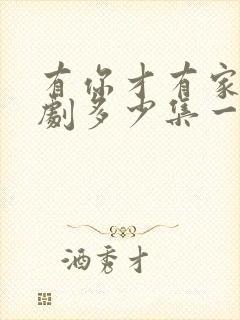 有你才有家
劇多少集一
酒秀才